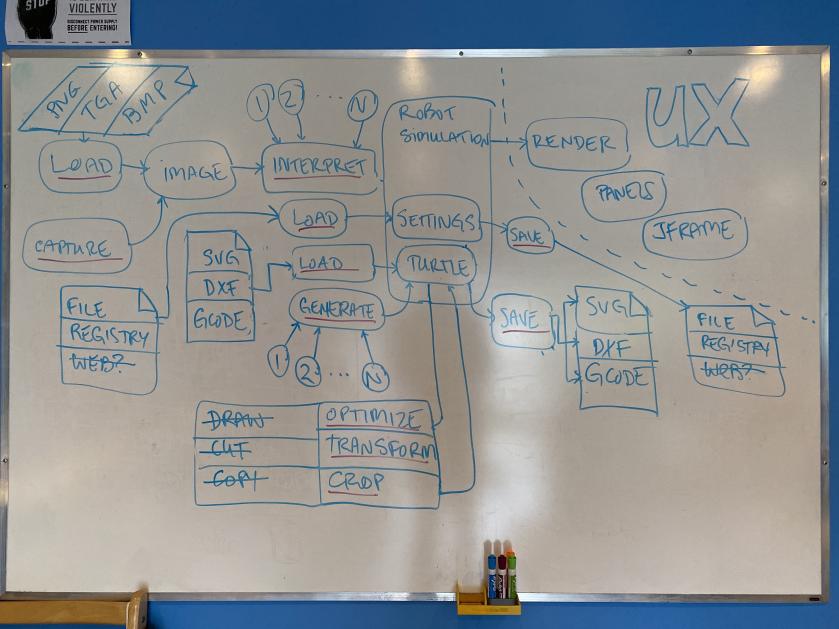 STOP
VIOLENTLY
DISCONNECT POWER SUPPLY
BEFORE ENTERING!
PNG
TGA
BMP
LOAD
IMAGE
1
2
...
N
INTERPRET
ROBOT
SIMULATION
RENDER
UX
PANELS
JFRAME
CAPTURE
LOAD
SETTINGS
SAVE
SVG
DXF
GCODE
LOAD
TURTLE
GENERATE
1
2
...
N
FILE
REGISTRY
WEB?
SAVE
SVG
DXF
GCODE
FILE
REGISTRY
WEB?
DRAW
OPTIMIZE
CUT
TRANSFORM
COPY
CROP